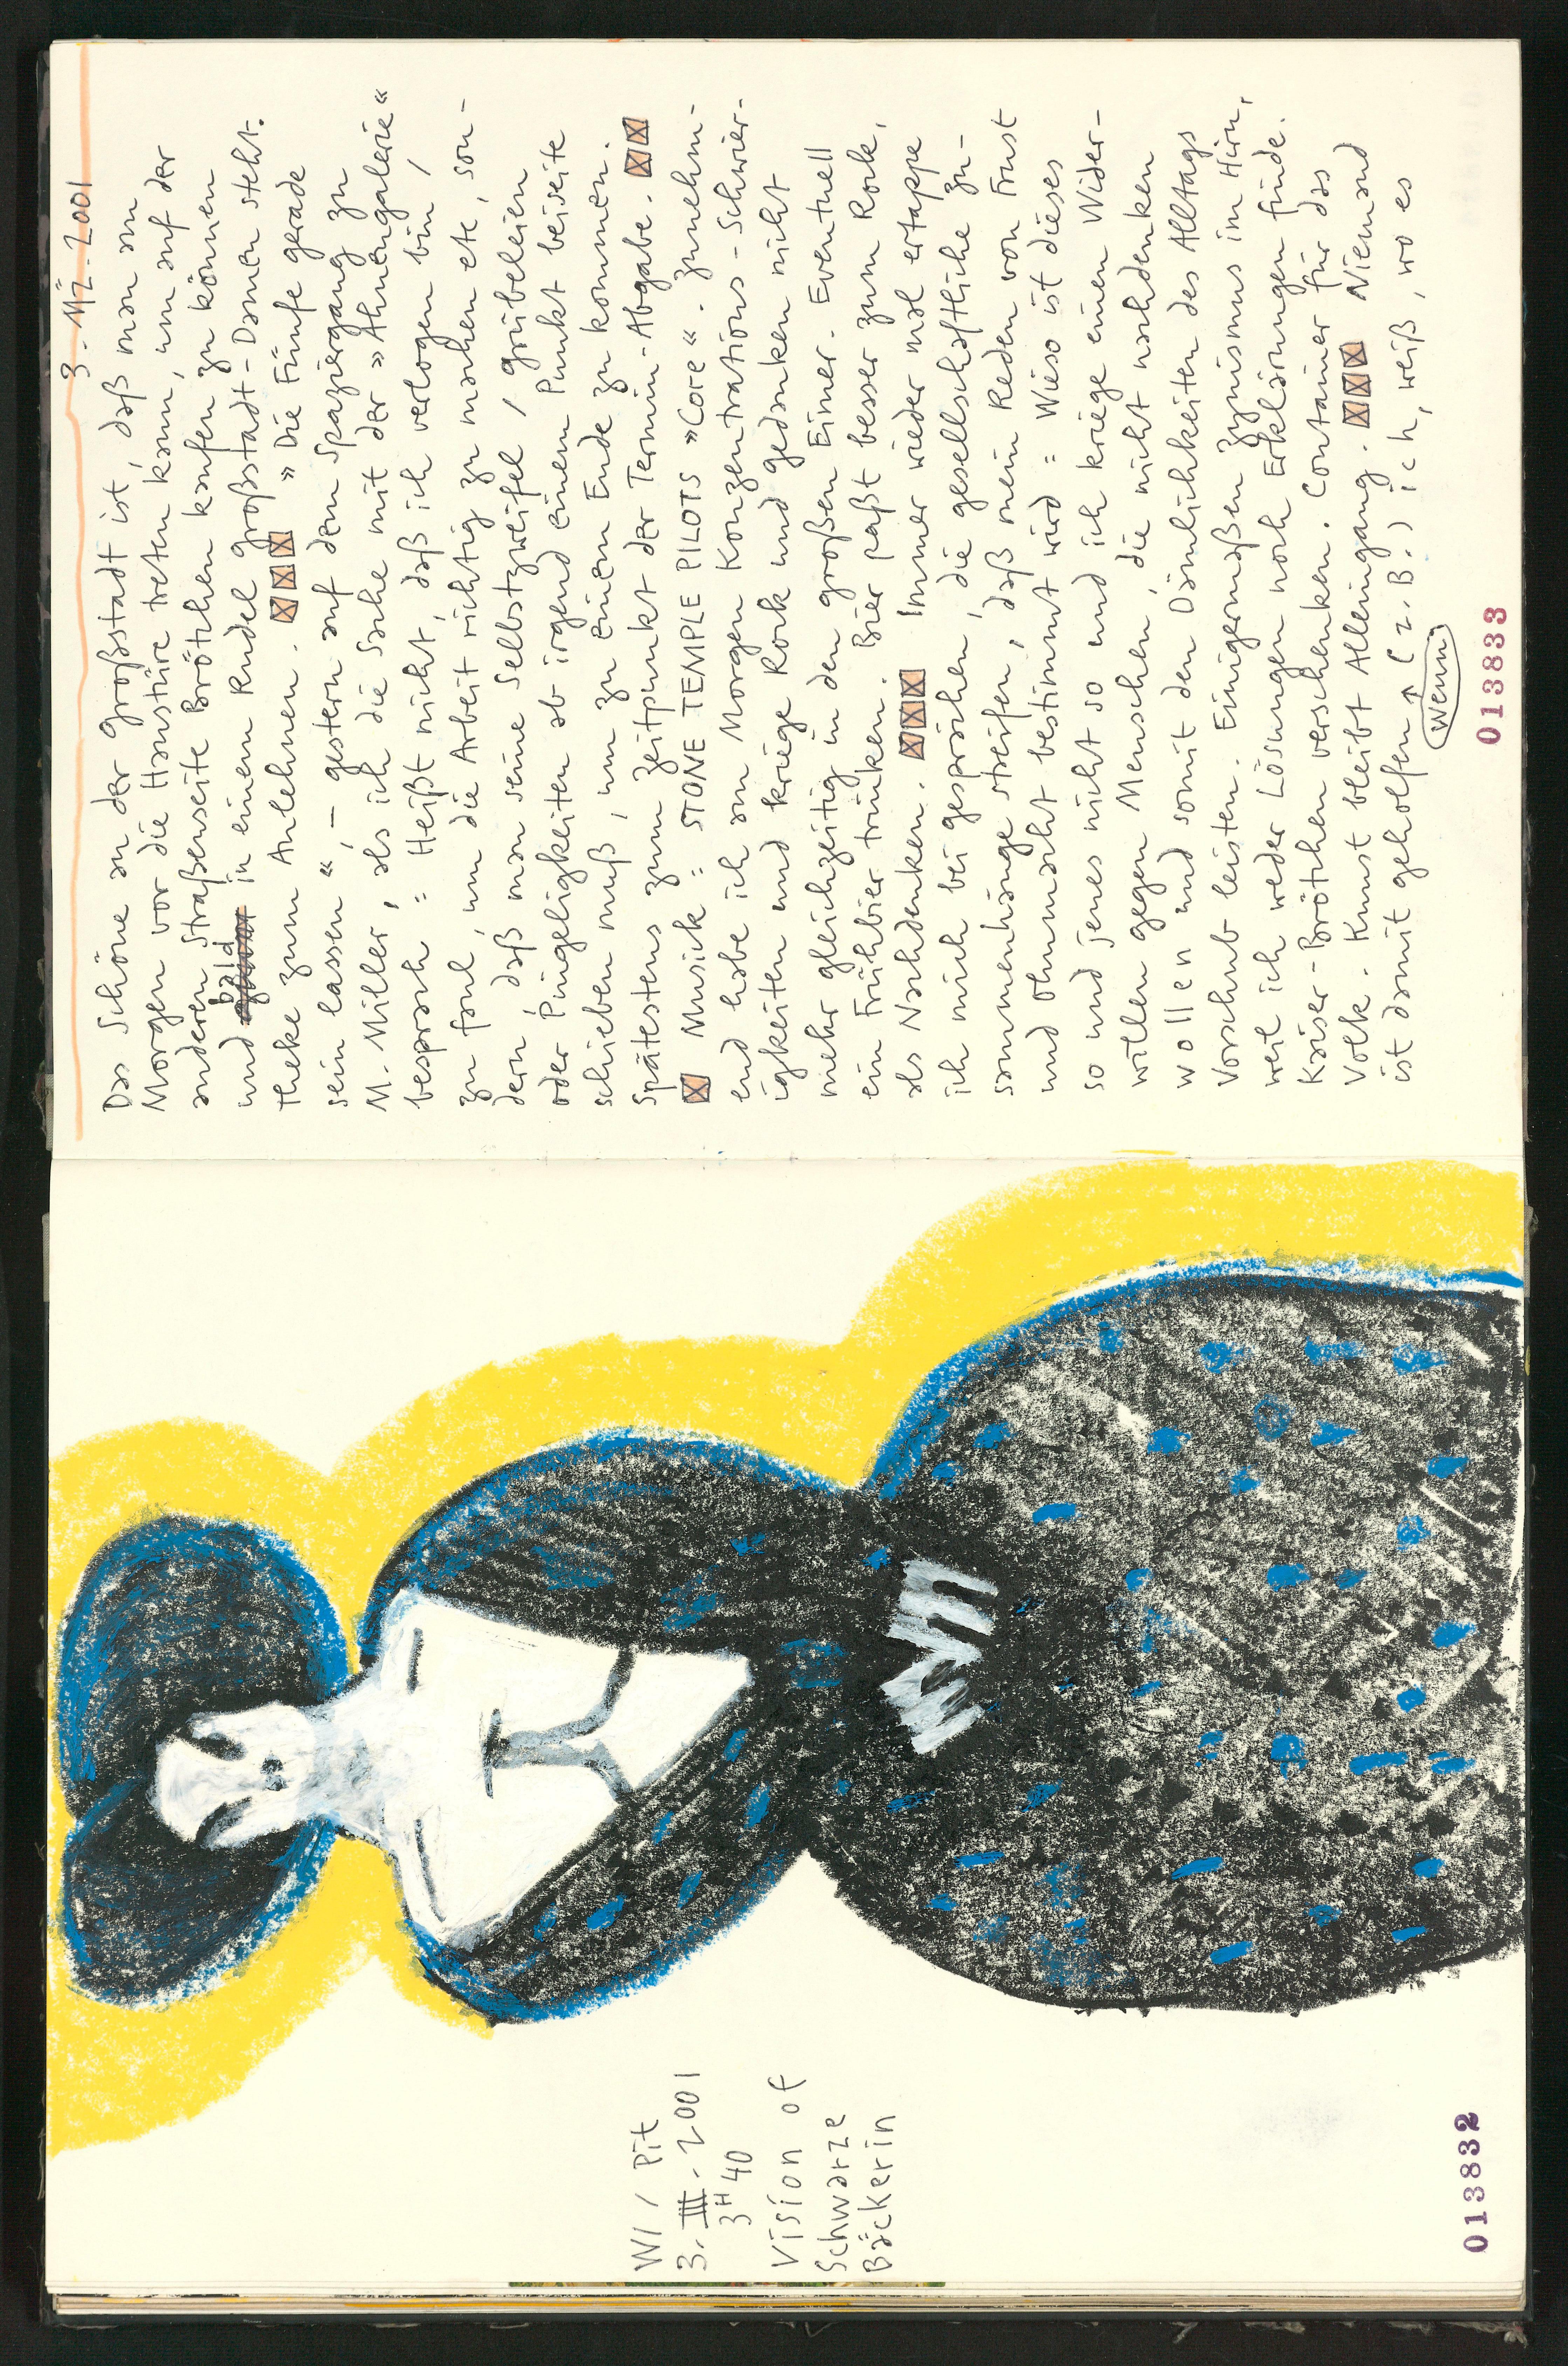 WI / Pit
3. III. 2001
3H40
Vision of
Schwarze
Bäckerin
013832
3. MZ. 2001
Das Schöne an der Großstadt ist, daß man am
Morgen vor die Haustüre treten kann, um auf der
anderen Straßenseite Brötchen kaufen zu können
und bald in einem Rudel Großstadt-Damen steht.
theke zum Anlehnen. ☒☒☒ »Die Fünfe gerade
sein lassen«, – gestern auf dem Spaziergang zu
M. Miller, als ich die Sache mit der »Ahnengalerie«
besprach = Heißt nicht, daß ich verlogen bin,
zu faul, um die Arbeit richtig zu machen etc, son-
dern, daß man seine Selbstzweifel, Grübeleien
oder Pingeligkeiten ab irgend einem Punkt beiseite
schieben muß, um zu einem Ende zu kommen.
Spätestens zum Zeitpunkt der Termin-Abgabe. ☒☒
☒ Musick = STONE TEMPLE PILOTS »Core«. Zunehm-
end habe ich am Morgen Konzentrations-Schwier-
igkeiten und kriege Rock und gedanken nicht
mehr gleichzeitig in den großen Eimer. Eventuell
ein Frühbier trinken. Bier paßt besser zum Rock,
als Nachdenken. ☒☒☒ Immer wieder mal ertappe
ich mich bei gesprächen, die gesellschaftliche Zu-
sammenhänge streifen, daß mein Reden von Frust
und Ohnmacht bestimmt wird = Wieso ist dieses
so und jenes nicht so und ich kriege einen Wider-
willen gegen Menschen, die nicht nachdenken
wollen und somit den Dämlichkeiten des Alltags
Vorschub leisten. Einigermaßen Zynismus im Hirn,
weil ich weder Lösungen noch Erklärungen finde.
Kaiser-Brötchen verschenken. Container für das
Volk. Kunst bleibt Alleingang. ☒☒☒ Niemand
ist damit geholfen (z.B.) ich, weiß, wo es
wenn
013833